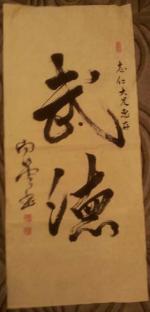 志仁大兄惠存
武德